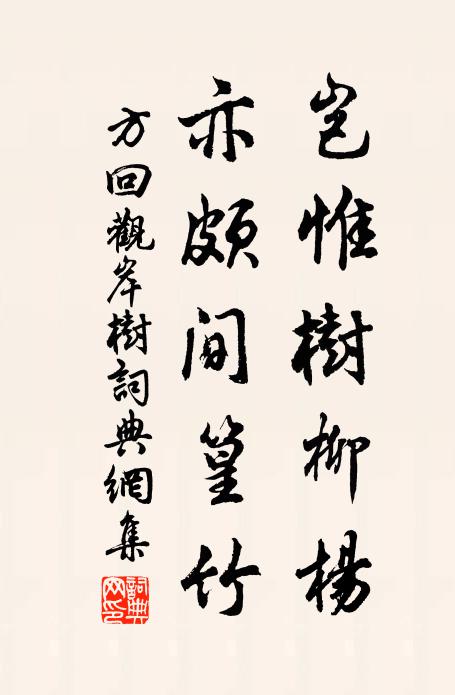 豈惟樹柳楊
亦頗間篁竹
方回觀岸樹詞典網集
詞典網印